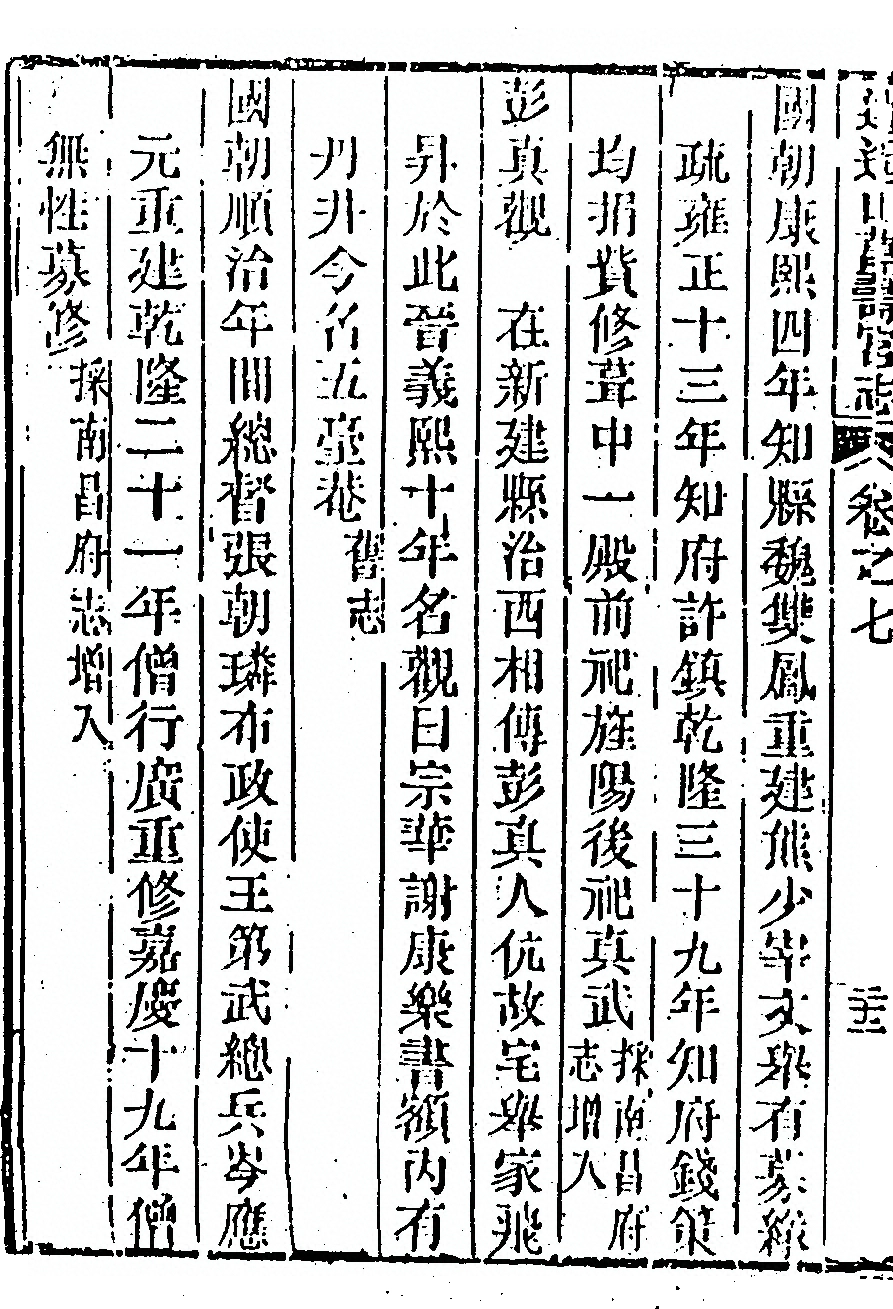 逍遙山萬壽宮志 卷之七 二十二
國朝康熙四年知縣魏雙鳳重建熊少宰文舉有募緣
疏雍正十三年知府許鎮乾隆三十九年知府錢策
均捐貲修葺中一殿前祀旌陽後祀真武採南昌府志增入
彭真觀 在新建縣治西相傳彭真人伉故宅舉家飛
昇於此晉義熙十年名觀曰宗華謝康樂書額內有
丹井今名五臺菴舊志
國朝順治年間總督張朝璘布政使王第武總兵岑應
元重建乾隆二十一年僧行廣重修嘉慶十九年僧
無性募修採南昌府志增入